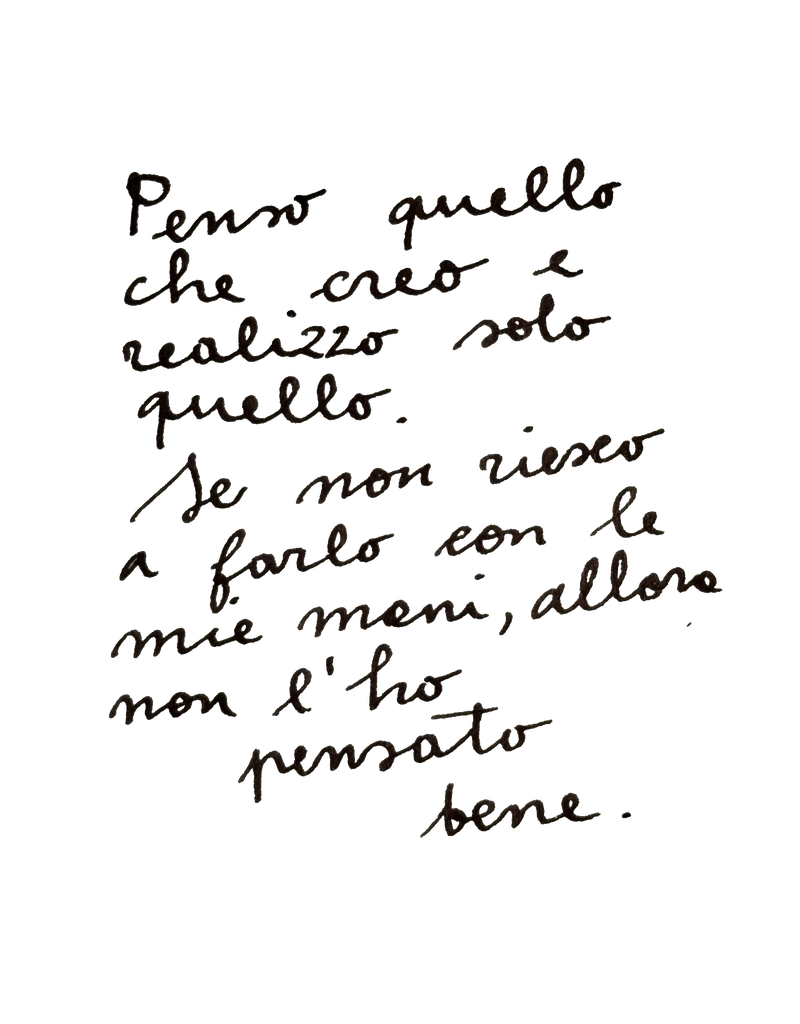 Penso quello
che creo e
realizzo solo
quello.
Se non riesco
a farlo con le
mie mani, allora
non l'ho
pensato
bene.